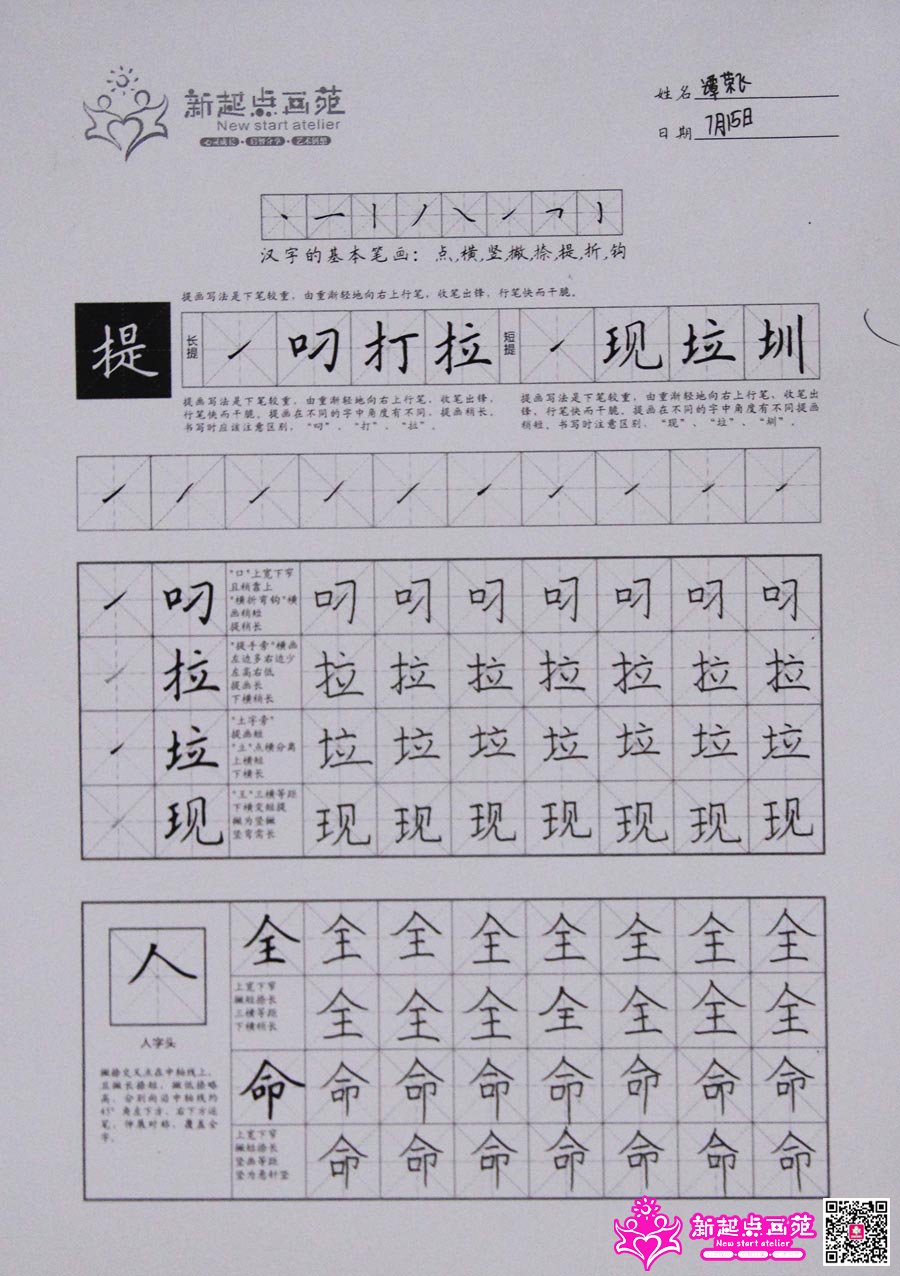 新起点画苑
New start atelier
心灵成长·启智介学·艺术创想
姓名 谭荣飞
日期 7月15日
汉字的基本笔画：点,横,竖,撇,捺,提,折,钩
提画写法是下笔较重，由重渐轻地向右上行笔，收笔出锋，行笔快而干脆。
提
长提 叼 打 拉 短提 现 垃 圳
提画写法是下笔较重，由重渐轻地向右上行笔，收笔出锋，
行笔快而干脆。提画在不同的字中角度有不同，提画稍长。
书写时应该注意区别，“叼”、“打”、“拉”。
提画写法是下笔较重，由重渐轻地向右上行笔，收笔出
锋，行笔快而干脆。提画在不同的字中角度有不同提画
稍短、书写时注意区别，“现”、“垃”、“圳”。
叼
“口”上宽下窄
且稍靠上
“横折弯钩”横
画稍短
提稍长
叼 叼 叼 叼 叼 叼 叼
拉
“提手旁”横画
左边多右边少
左高右低
提画长
下横稍长
拉 拉 拉 拉 拉 拉 拉
垃
“土字旁”
提画短
“立”点横分离
上横短
下横长
垃 垃 垃 垃 垃 垃 垃
现
“王”三横等距
下横变短提
撇为竖撇
竖弯需长
现 现 现 现 现 现 现
人
人字头
撇捺交叉点在中轴线上，
且撇长捺短，撇低捺略
高，分别向沿中轴线约
45°角左下方，右下方运
笔，伸展对称，覆盖全
字。
全 全 全 全 全 全 全 全
上宽下窄
撇短捺长
三横等距
下横稍长
全 全 全 全 全 全 全
命 命 命 命 命 命 命 命
上宽下窄
撇短捺长
竖画等距
竖为悬针竖
命 命 命 命 命 命 命
新起点画苑
New start atelier